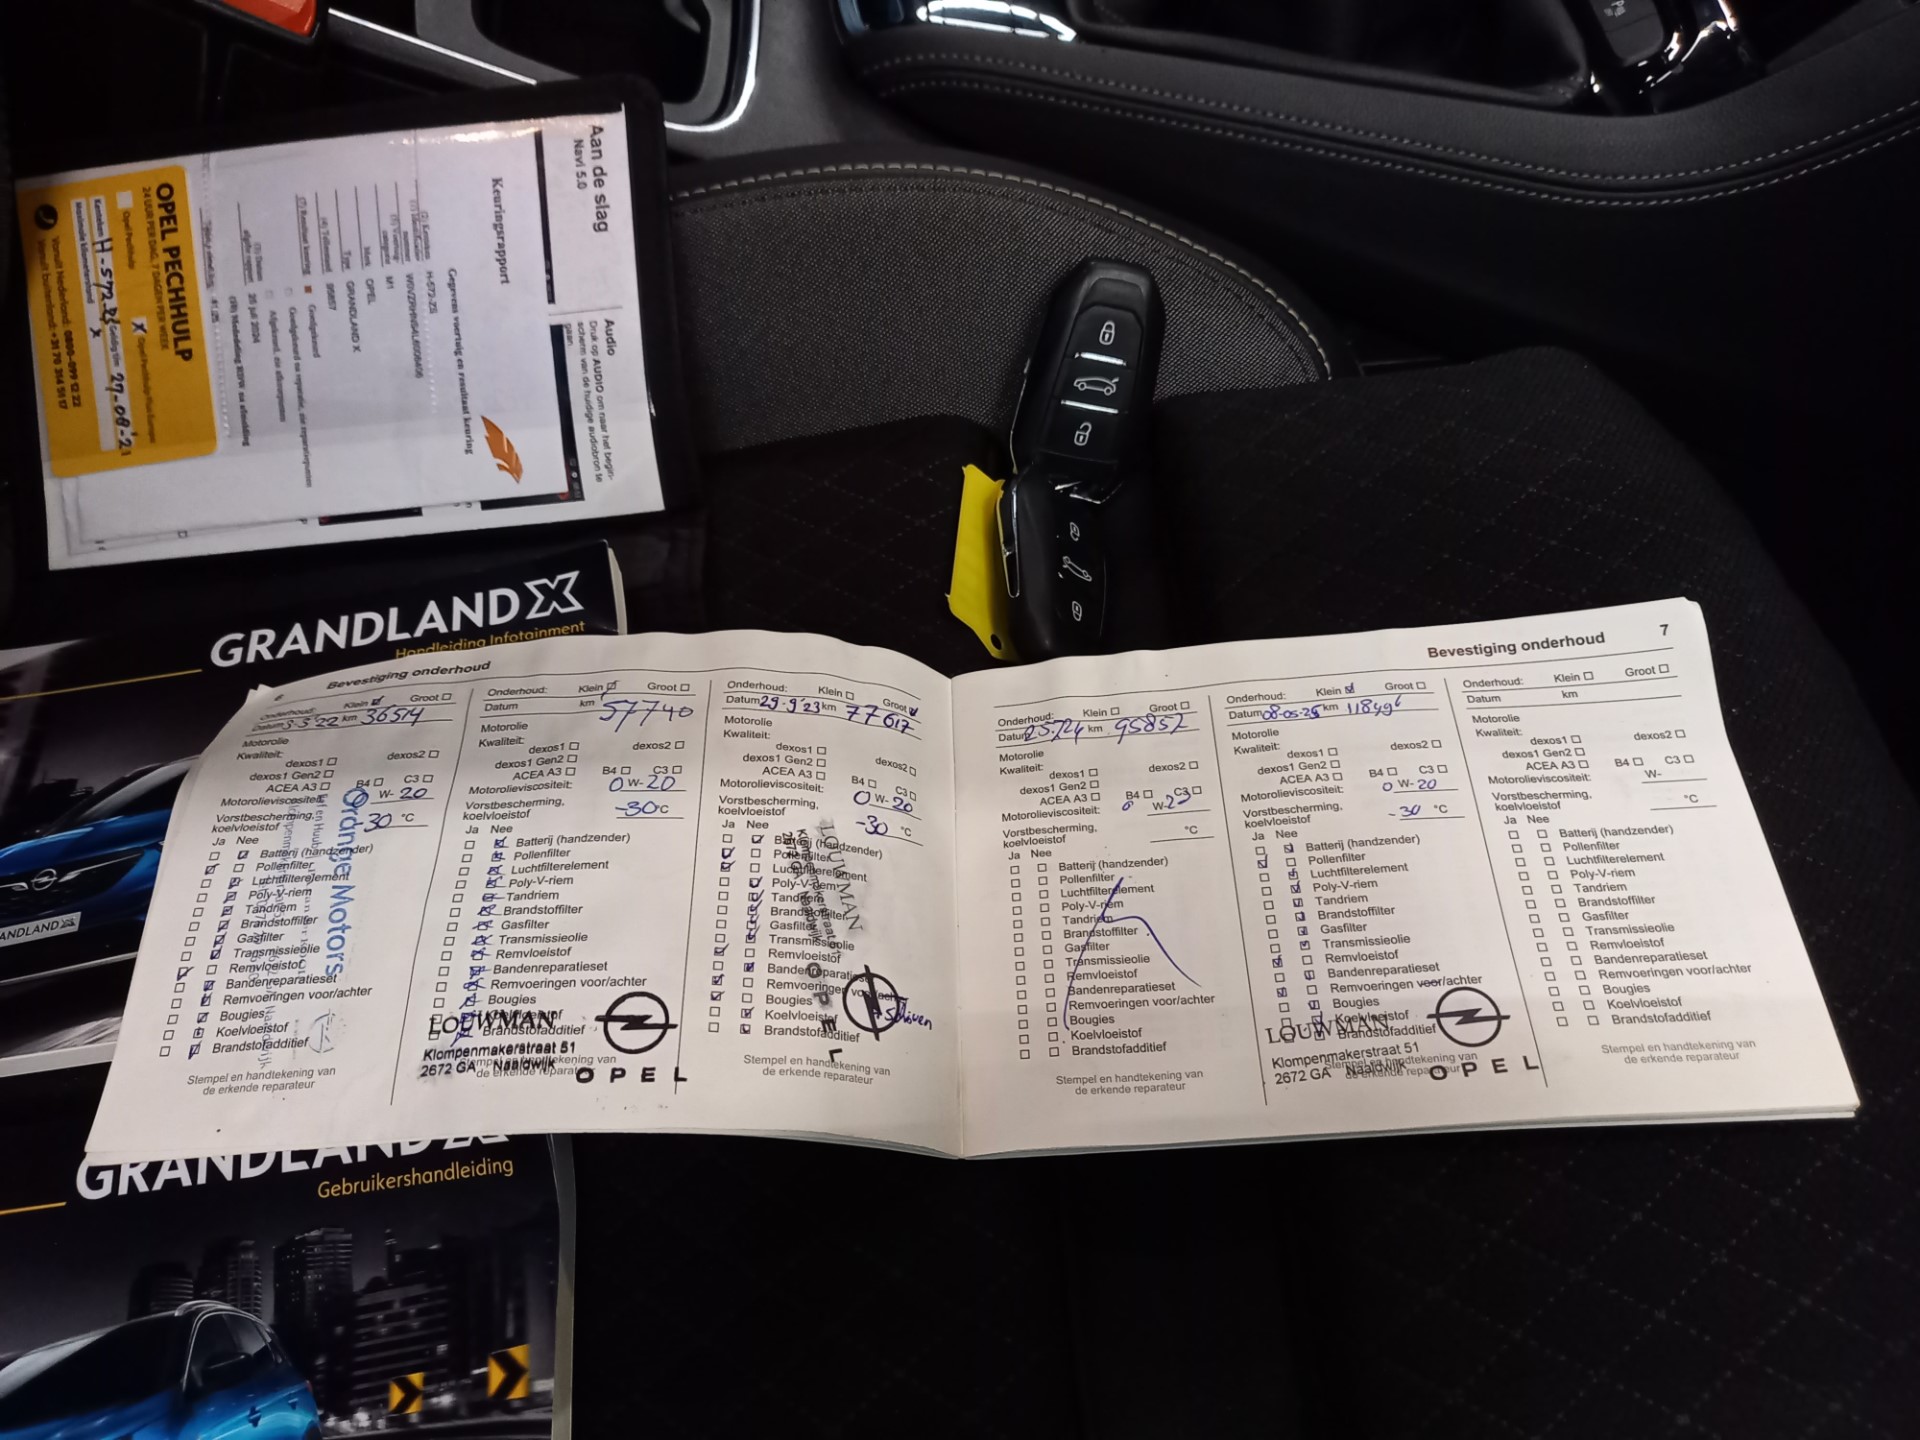 Aan de slag
Navi 5.0
Audio
Druk op AUDIO om naar het begin-
scherm van de huidige audiobron te
gaan.
Keuringsrapport
Gegevens voertuig en resultaat keuring
H-572-ZS
M1
Merk OPEL
Type GRANDLAND X
95857
Goedgekeurd
26 juli 2024
OPEL PECHHULP
24 UUR PER DAG, 7 DAGEN PER WEEK
Opel Pechhulp X
Kenteken H-572-ZS Geldig t/m 27-08-'21
Maximale kilometerstand X
Vanuit Nederland: 0800-099 12 22
Vanuit buitenland: +31 70 314 51 17
GRANDLAND X
Handleiding Infotainment
GRANDLAND X
Gebruikershandleiding
6 Bevestiging onderhoud
Onderhoud: Klein Groot
Datum 3-3-'22 km 36514
Motorolie
Kwaliteit:
dexos1 dexos2
dexos1 Gen2
ACEA A3 B4 C3
Motorolieviscositeit: 0 W- 20
Vorstbescherming,
koelvloeistof -30 °C
Ja Nee
Batterij (handzender)
Pollenfilter
Luchtfilterelement
Poly-V-riem
Tandriem
Brandstoffilter
Gasfilter
Transmissieolie
Remvloeistof
Bandenreparatieset
Remvoeringen voor/achter
Bougies
Koelvloeistof
Brandstofadditief
Ordnge Motors
Stempel en handtekening van
de erkende reparateur
Onderhoud: Klein Groot
Datum km 57740
Motorolie
Kwaliteit:
dexos1 dexos2
dexos1 Gen2
ACEA A3 B4 C3
Motorolieviscositeit: 0 W- 20
Vorstbescherming,
koelvloeistof -30 °C
Ja Nee
Batterij (handzender)
Pollenfilter
Luchtfilterelement
Poly-V-riem
Tandriem
Brandstoffilter
Gasfilter
Transmissieolie
Remvloeistof
Bandenreparatieset
Remvoeringen voor/achter
Bougies
Koelvloeistof
Brandstofadditief
LOUWMAN
Klompenmakerstraat 51
2672 GA Naaldwijk
OPEL
Stempel en handtekening van
de erkende reparateur
Onderhoud: Klein Groot
Datum 29-9'23 km 77617
Motorolie
Kwaliteit:
dexos1 dexos2
dexos1 Gen2
ACEA A3 B4 C3
Motorolieviscositeit: 0 W- 20
Vorstbescherming,
koelvloeistof -30 °C
Ja Nee
Batterij (handzender)
Pollenfilter
Luchtfilterelement
Poly-V-riem
Tandriem
Brandstoffilter
Gasfilter
Transmissieolie
Remvloeistof
Bandenreparatieset
Remvoeringen voor/achter
Bougies
Koelvloeistof
Brandstofadditief
LOUWMAN
Klompenmakerstraat
2672 GA Naaldwijk
OPEL
Stempel en handtekening van
de erkende reparateur
Bevestiging onderhoud 7
Onderhoud: Klein Groot
Datum 25.7.24 km 95857
Motorolie
Kwaliteit:
dexos1 dexos2
dexos1 Gen2
ACEA A3 B4 C3
Motorolieviscositeit: 0 W-20
Vorstbescherming, °C
koelvloeistof
Ja Nee
Batterij (handzender)
Pollenfilter
Luchtfilterelement
Poly-V-riem
Tandriem
Brandstoffilter
Gasfilter
Transmissieolie
Remvloeistof
Bandenreparatieset
Remvoeringen voor/achter
Bougies
Koelvloeistof
Brandstofadditief
Stempel en handtekening van
de erkende reparateur
Onderhoud: Klein Groot
Datum 08-05-25 km 118496
Motorolie
Kwaliteit:
dexos1 dexos2
dexos1 Gen2
ACEA A3 B4 C3
Motorolieviscositeit: 0 W- 20
Vorstbescherming,
koelvloeistof -30 °C
Ja Nee
Batterij (handzender)
Pollenfilter
Luchtfilterelement
Poly-V-riem
Tandriem
Brandstoffilter
Gasfilter
Transmissieolie
Remvloeistof
Bandenreparatieset
Remvoeringen voor/achter
Bougies
Koelvloeistof
Brandstofadditief
LOUWMAN
Klompenmakerstraat 51
2672 GA Naaldwijk
OPEL
Stempel en handtekening van
de erkende reparateur
Onderhoud: Klein Groot
Datum km
Motorolie
Kwaliteit:
dexos1 dexos2
dexos1 Gen2
ACEA A3 B4 C3
Motorolieviscositeit: W-
Vorstbescherming,
koelvloeistof °C
Ja Nee
Batterij (handzender)
Pollenfilter
Luchtfilterelement
Poly-V-riem
Tandriem
Brandstoffilter
Gasfilter
Transmissieolie
Remvloeistof
Bandenreparatieset
Remvoeringen voor/achter
Bougies
Koelvloeistof
Brandstofadditief
Stempel en handtekening van
de erkende reparateur